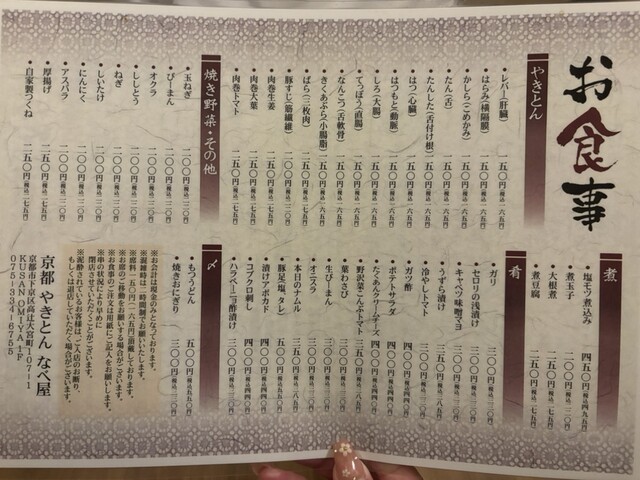 お食事
やきとん
・レバー(肝臓) 一五〇円(税込)一六五円
・はらみ(横隔膜) 一五〇円(税込)一六五円
・かしら(こめかみ) 一五〇円(税込)一六五円
・たん(舌) 一五〇円(税込)一六五円
・たんした(舌付け根) 一五〇円(税込)一六五円
・はつ(心臓) 一五〇円(税込)一六五円
・はつもと(動脈) 一五〇円(税込)一六五円
・しろ(大腸) 一五〇円(税込)一六五円
・てっぽう(直腸) 一五〇円(税込)一六五円
・なんこつ(舌軟骨) 一五〇円(税込)一六五円
・きくあぶら(小腸脂) 一五〇円(税込)一六五円
・ばら(三枚肉) 一五〇円(税込)一六五円
・豚すじ(筋繊維)
・肉巻生姜 二五〇円(税込)二七五円
・肉巻大葉 二五〇円(税込)二七五円
・肉巻トマト 二五〇円(税込)二七五円
焼き野菜・その他
・玉ねぎ 二〇〇円(税込)二二〇円
・ぴーまん 二〇〇円(税込)二二〇円
・オクラ 二〇〇円(税込)二二〇円
・ししとう 二〇〇円(税込)二二〇円
・ねぎ 二〇〇円(税込)二二〇円
・しいたけ 二〇〇円(税込)二二〇円
・にんにく 二〇〇円(税込)二二〇円
・アスパラ 二〇〇円(税込)二二〇円
・厚揚げ 二五〇円(税込)二七五円
・自家製つくね 二五〇円(税込)二七五円
煮
・塩モツ煮込み 四五〇円(税込)四九五円
・煮玉子 二〇〇円(税込)二二〇円
・大根煮 二五〇円(税込)二七五円
・煮豆腐 二五〇円(税込)二七五円
肴
・ガリ 二〇〇円(税込)二二〇円
・セロリの浅漬け 三〇〇円(税込)三三〇円
・キャベツ味噌マヨ 三〇〇円(税込)三三〇円
・うずら漬け
・冷やしトマト
・ガツ酢 四〇〇円(税込)四四〇円
・ポテトサラダ 四〇〇円(税込)四四〇円
・たくあんクリームチーズ 四〇〇円(税込)四四〇円
・野沢菜こんぶトマト
・葉わさび 三〇〇円(税込)三三〇円
・生ぴーまん 三〇〇円(税込)三三〇円
・オニスラ 三〇〇円(税込)三三〇円
・本日のナムル
・豚足(塩、タレ) 五〇〇円(税込)五五〇円
・漬けアボカド 四〇〇円(税込)四四〇円
・コブクロ刺し 四〇〇円(税込)四四〇円
・ハラペーニョ酢漬け 三〇〇円(税込)三三〇円
〆
・もつうどん 五〇〇円(税込)五五〇円
・焼きおにぎり 三〇〇円(税込)三三〇円
※お会計は現金のみとなっております。
※混雑時は二時間制でお願いいたします。
※席料一五〇円(一六五円)頂戴しております。
※お席のご移動をお願いする場合がございます。
※お食事のご注文は用紙にご記入をお願いします。
※串の状況により早めに
閉店させていただく場合がございます。
※泥酔されているお客様は、ご入店のお断り、
もしくは退店していただく場合がございます。
京都 やきとん なべ屋
京都市下京区高辻大宮町107-1
KUSAN OMIYA 1F
075-334-6755